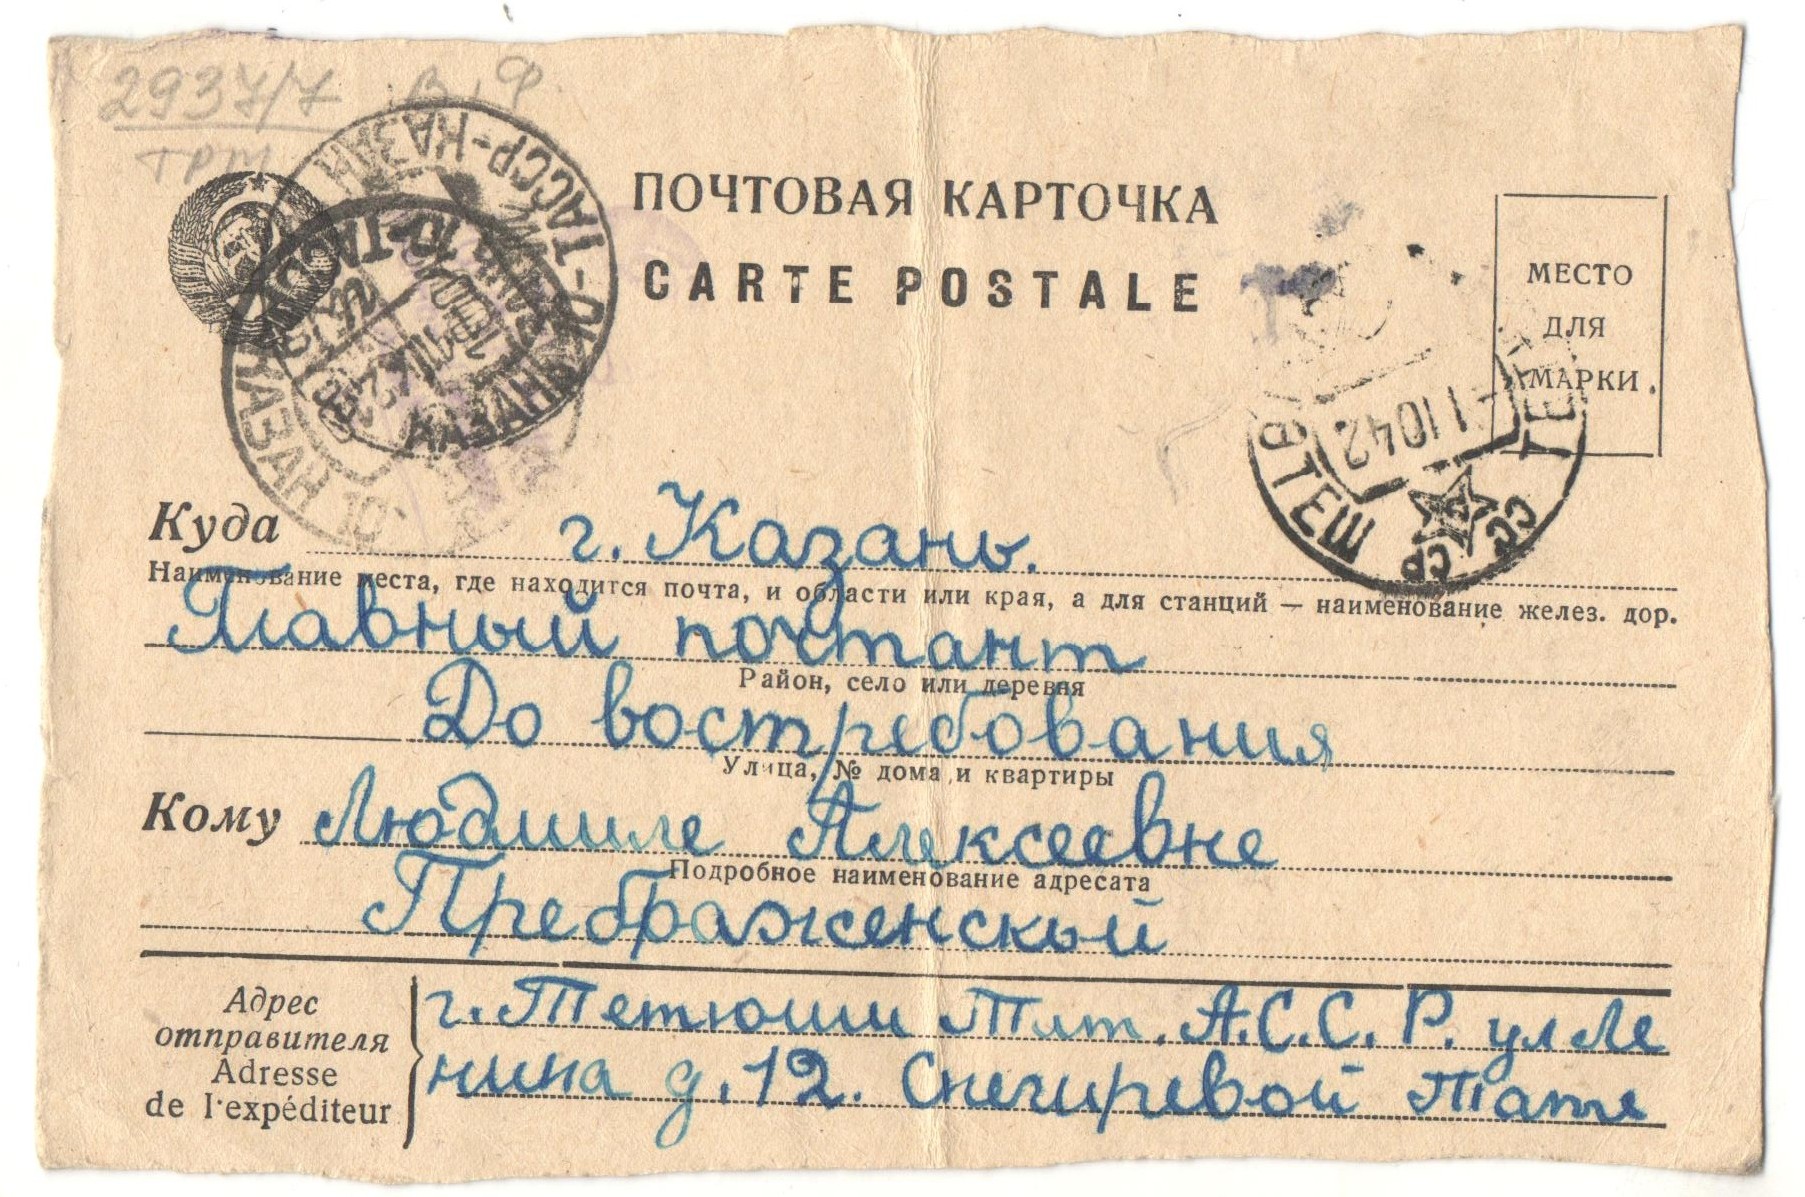 2937/7 В.Ф
ПОЧТОВАЯ КАРТОЧКА
CARTE POSTALE
МЕСТО
ДЛЯ
МАРКИ.
КАЗАНЬ ТАССР-КАЗАН
1 10 42
СССР
Куда г. Казань.
Наименование места, где находится почта, и области или края, а для станций — наименование желез. дор.
Главный почтамт
Район, село или деревня
До востребования
Улица, № дома и квартиры
Кому Людмиле Алексеевне
Подробное наименование адресата
Пребраженскый
Адрес
отправителя
Adresse
de l'expéditeur
г. Тетюши Тат. А.С.С.Р. ул Ле
нина д. 12. Снегиревой Тате